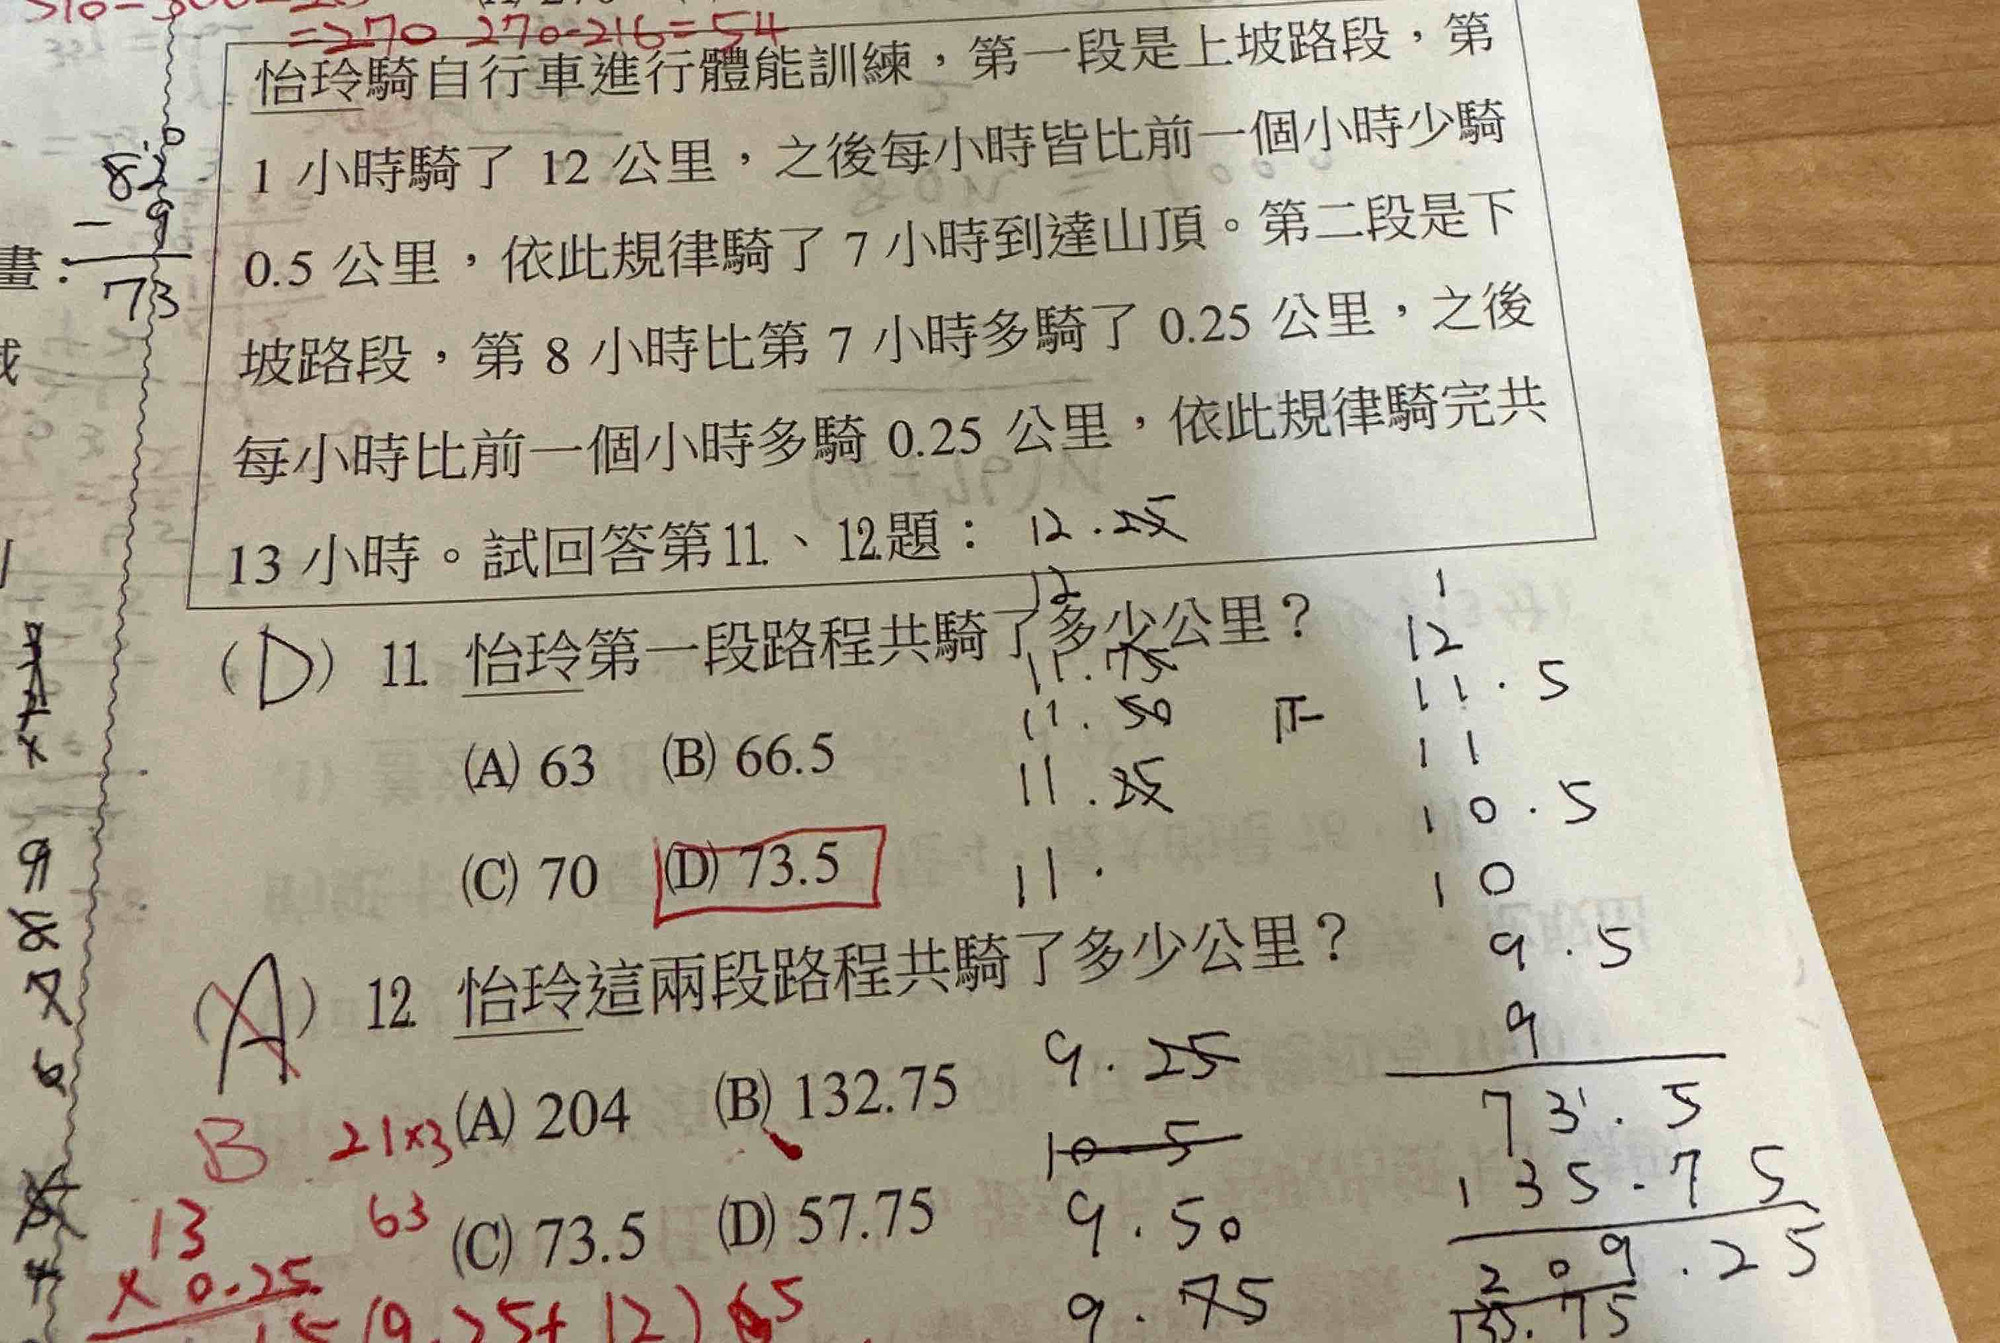 =270 270-216=54
怡玲騎自行車進行體能訓練，第一段是上坡路段，第
1 小時騎了 12 公里，之後每小時皆比前一個小時少騎
0.5 公里，依此規律騎了 7 小時到達山頂。第二段是下
坡路段，第 8 小時比第 7 小時多騎了 0.25 公里，之後
每小時比前一個小時多騎 0.25 公里，依此規律騎完共
13 小時。試回答第11.、12.題：
82
- 9
73
畫：
12.25
12
11.75
11.50
11.25
11.
(D) 11. 怡玲第一段路程共騎了多少公里？
(A) 63 (B) 66.5
(C) 70 (D) 73.5
1
12
11.5
11
10.5
10
9.5
9
73.5
135.75
209.25
135.75
(A) 12. 怡玲這兩段路程共騎了多少公里？
B
(A) 204 (B) 132.75
(C) 73.5 (D) 57.75
9.25
10.5
9.50
9.75
21×3
63
13
× 0.25
(9.25+12)
9
8
7
6